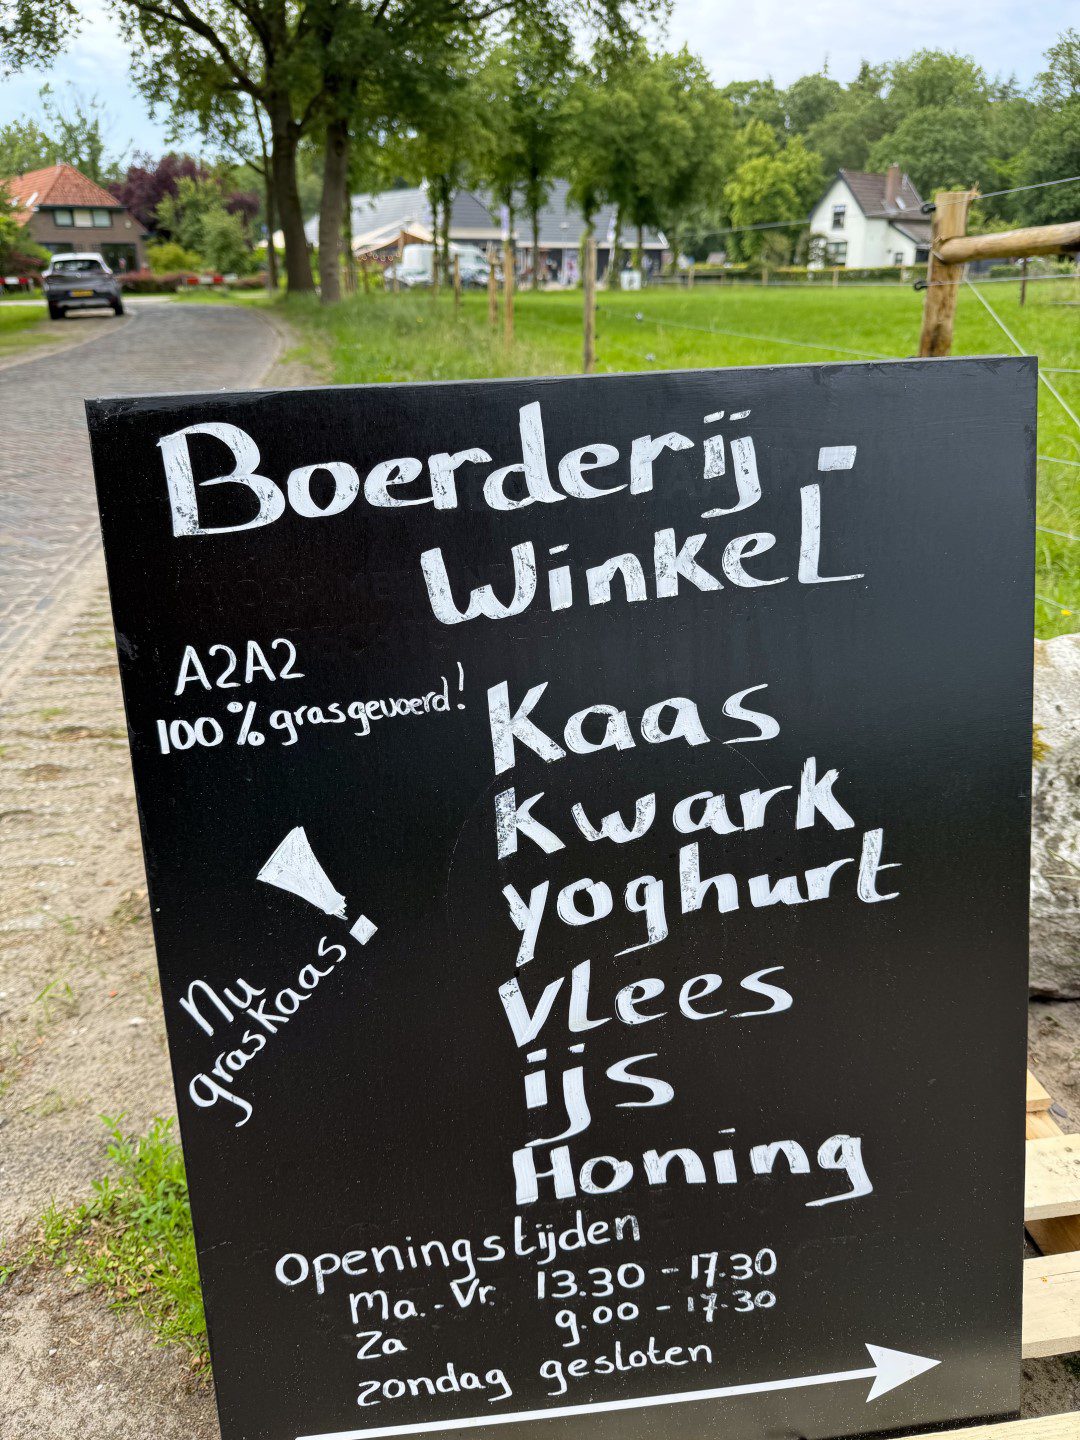 Boerderij -
Winkel
A2A2
100% grasgevoerd!
Kaas
Kwark
yoghurt
Vlees
ijs
Honing
!
Nu
graskaas
Openingstijden
Ma.-Vr. 13.30 - 17.30
Za 9.00 - 17.30
zondag gesloten